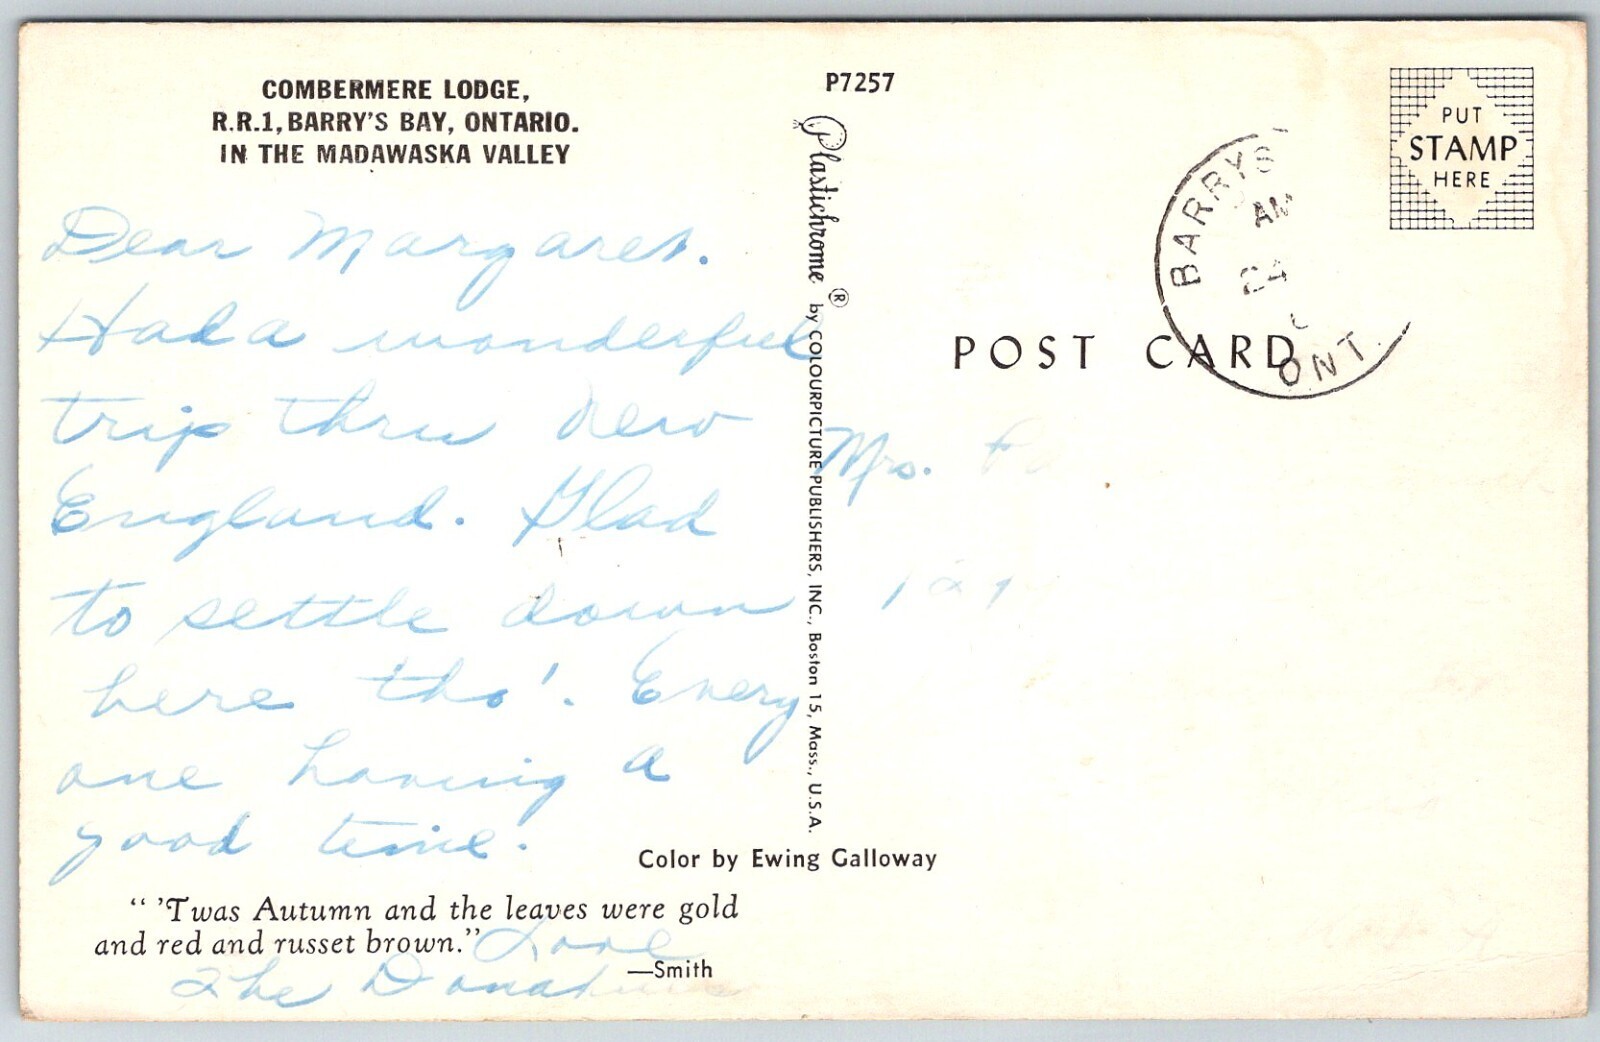 COMBERMERE LODGE,
R.R.1, BARRY'S BAY, ONTARIO.
IN THE MADAWASKA VALLEY
Dear Margaret.
Had a wonderful
trip thru New
England. Glad
to settle down
here tho'. Every
one having a
good time.
" 'Twas Autumn and the leaves were gold
and red and russet brown."
—Smith
Love
The
P7257
Plastichrome ® by COLOURPICTURE PUBLISHERS, INC., Boston 15, Mass., U.S.A.
Color by Ewing Galloway
PUT
STAMP
HERE
BARRYS
AM
24
ONT.
POST CARD
Mrs.
121